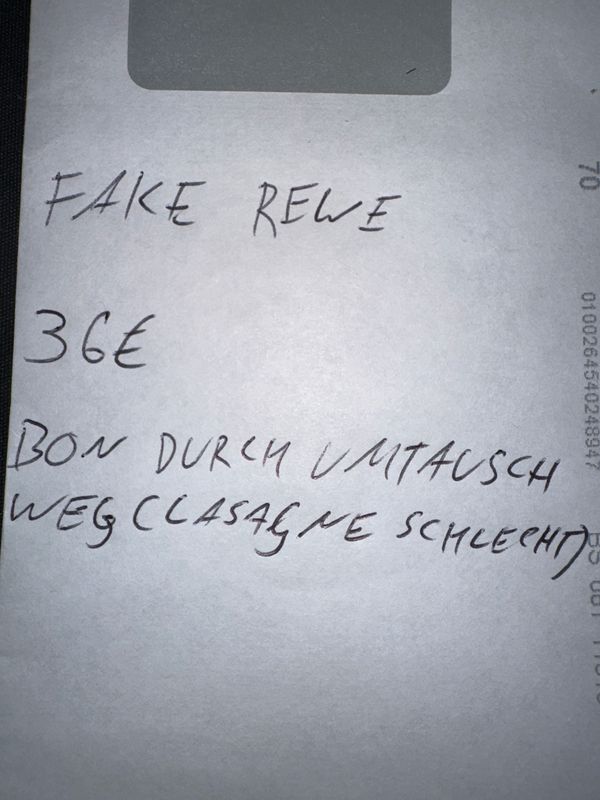 FAKE REWE
36€
BON DURCH UMTAUSCH
WEG (LASAGNE SCHLECHT)
70
0100026454024 8947